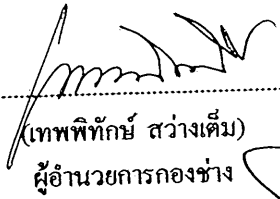 (เทพพิทักษ์ สว่างเต็ม)
ผู้อำนวยการกองช่าง